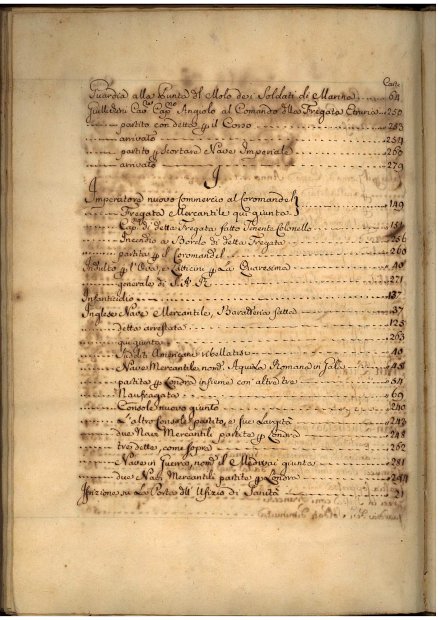 Car.
Guardia alla Punta del Molo dei Soldati di Marina 64
Cav. Cap. Angiolo al Comando della Fregata Etruria 250
partito con detta p il Corso 253
arrivato 254
partito p scortare Nave Imperiale 268
arrivato 279
I
Imperatore nuovo Commercio al Coromandel
Fregata Mercantile qui giunta } 149
Cap. di detta Fregata fatto Tenente Colonello 151
Incendio a Bordo di detta Fregata 256
partita p il Coromandel 260
Indulto p l'Ova, e Latticini p La Quaresima 40
generale di S.A.R. 271
Infanticidio 137
Inglese Nave Mercantile, Baratteria fatta 37
detta arrestata 125
qui giunta 263
Sudditi Americani ribellatisi 40
Nave Mercantile nom. Aquila Romana in Sale 45
partita p Londra insieme con altre tre 54
Naufragata 69
Console nuovo giunto 240
L'altro Console partito, e sue Largità 243
due Navi Mercantili partite p Londra 248
tre dette, come sopra 262
Nave in Guerra, nom. giunta 281
due Navi Mercantili partite p Londra 294
Iscrizione su La Porta dell' Ufizio di Sanità 21